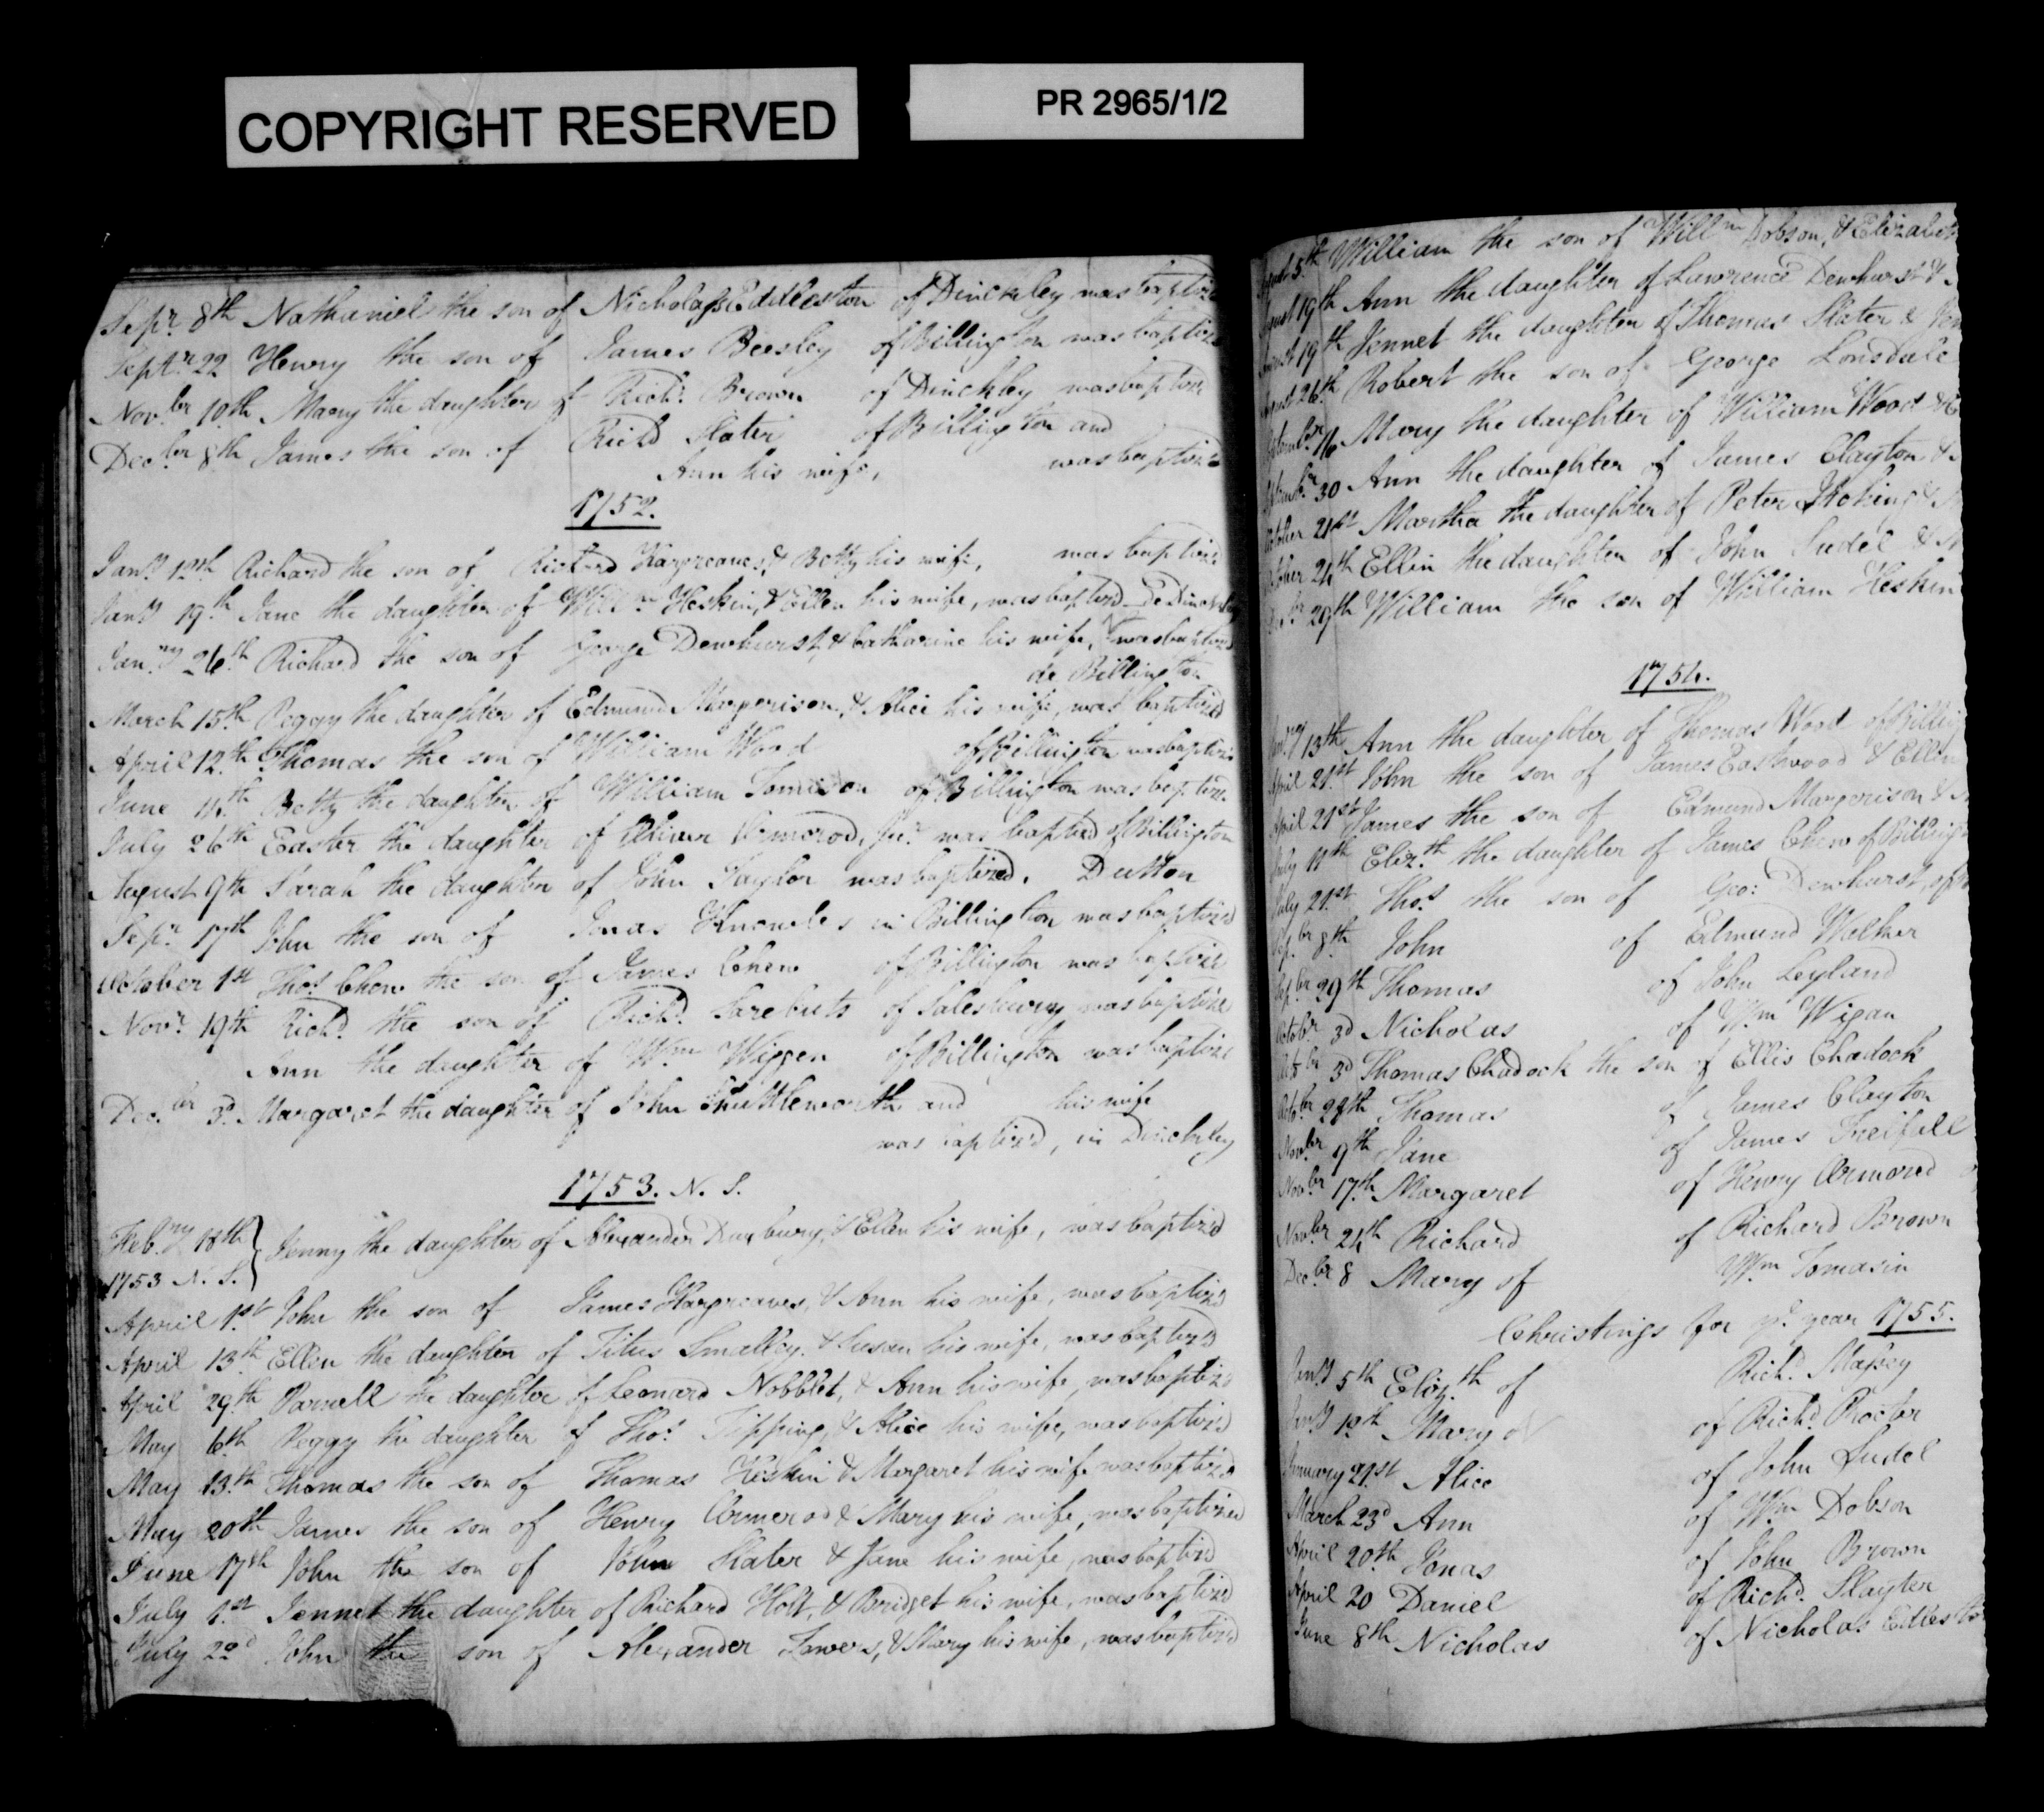 COPYRIGHT RESERVED
PR 2965/1/2
Sepr. 8th Nathaniel the son of Nicholas Eddleston of Dinckley was baptiz
Septr 22 Henry the son of James Beesley of Billington was baptiz
Novbr 10th Mary the daughter of Richd. Brown of Dinckley was baptiz
Decbr 8th James the son of Richd Slater of Billington and
Ann his wife, was baptiz'd
1752.
Jany 12th Richard the son of Richard Hargreaves, & Betty his wife, was baptiz'd
Jany 19th Jane the daughter of Willm Heskin, & Ellen his wife, was baptiz'd De Dinckley
Janry 26th Richard the son of George Dewhurst, & Catharine his wife, was baptiz'd
de Billington
March 15th Peggy the daughter of Edmund Margerison, & Alice his wife, was baptized
April 12th Thomas the son of William Wood of Billington was baptiz'd
June 14th Betty the daughter of William Tomison of Billington was baptiz'd
July 26th Easter the daughter of Oliver Ormerod, Junr. was baptiz'd of Billington
August 9th Sarah the daughter of John Taylor was baptized. Dutton
Sepr. 17th John the son of Jonas Knowles in Billington was baptiz'd
October 1st Thos. Chew the son of James Chew of Billington was baptiz'd
Novr. 19th Richd. the son of Richd. Sarebuts of Salesbury was baptiz'd
Ann the daughter of Wm Wiggen of Billington was baptiz'd
Decbr 3d. Margaret the daughter of John Shuttleworth and his wife
was baptiz'd, in Dinckley
1753. N. S.
Febry 18th Jenny the daughter of Alexander Duxbury, & Ellen his wife, was baptiz'd
1753 N. S.
April 1st John the son of James Hargreaves, & Ann his wife, was baptiz'd
April 13th Ellen the daughter of Titus Smalley, & Susan his wife, was baptiz'd
April 29th Parnell the daughter of Leonard Nobblet, & Ann his wife, was baptiz'd
May 6th Peggy the daughter of Thos. Tipping, & Alice his wife, was baptiz'd
May 13th Thomas the son of Thomas Heskin & Margaret his wife was baptiz'd
May 20th James the son of Henry Ormerod & Mary his wife, was baptized
June 17th John the son of John Slater & Jane his wife, was baptiz'd
July 1st Jennet the daughter of Richard Holt, & Bridget his wife, was baptiz'd
July 22d John the son of Alexander Towers, & Mary his wife, was baptiz'd
5th William the son of Willm Dobson, & Elizabeth
19th Ann the daughter of Lawrence Dewhurst &
19th Jennet the daughter of Thomas Slater & Jen
26th Robert the son of George Lonsdale
16 Mary the daughter of William Wood &
30 Ann the daughter of James Clayton &
October 21st Martha the daughter of Peter &
24th Ellin the daughter of John Sudel &
29th William the son of William Heskin
1754.
13th Ann the daughter of Thomas Wood of Billing
April 21st John the son of James Eastwood & Ellen
April 21st James the son of Edmund Margerison &
July 11th Elizth the daughter of James Chew of Billing
July 21st Thos. the son of Geo: Dewhurst, of
8th John of Edmund Walker
29th Thomas of John Leyland
Octobr 3d Nicholas of Wm Wigan
3d Thomas Chadock the son of Ellis Chadock
Octobr 28th Thomas of James Clayton
Novbr 9th Jane of James Treifall
Novbr 17th Margaret of Henry Ormerod
Novbr 24th Richard of Richard Brown
Decbr 8 Mary of Wm Tomasin
Christings for ye. year 1755.
Jany 5th Elizth of Richd. Massey
Jany Mary of of Richd. Procter
January 21st Alice of John Sudel
March 23d Ann of Wm Dobson
April 20th Jonas of John Brown
April 20 Daniel of Richd. Slayter
June 8th Nicholas of Nicholas Edlesto